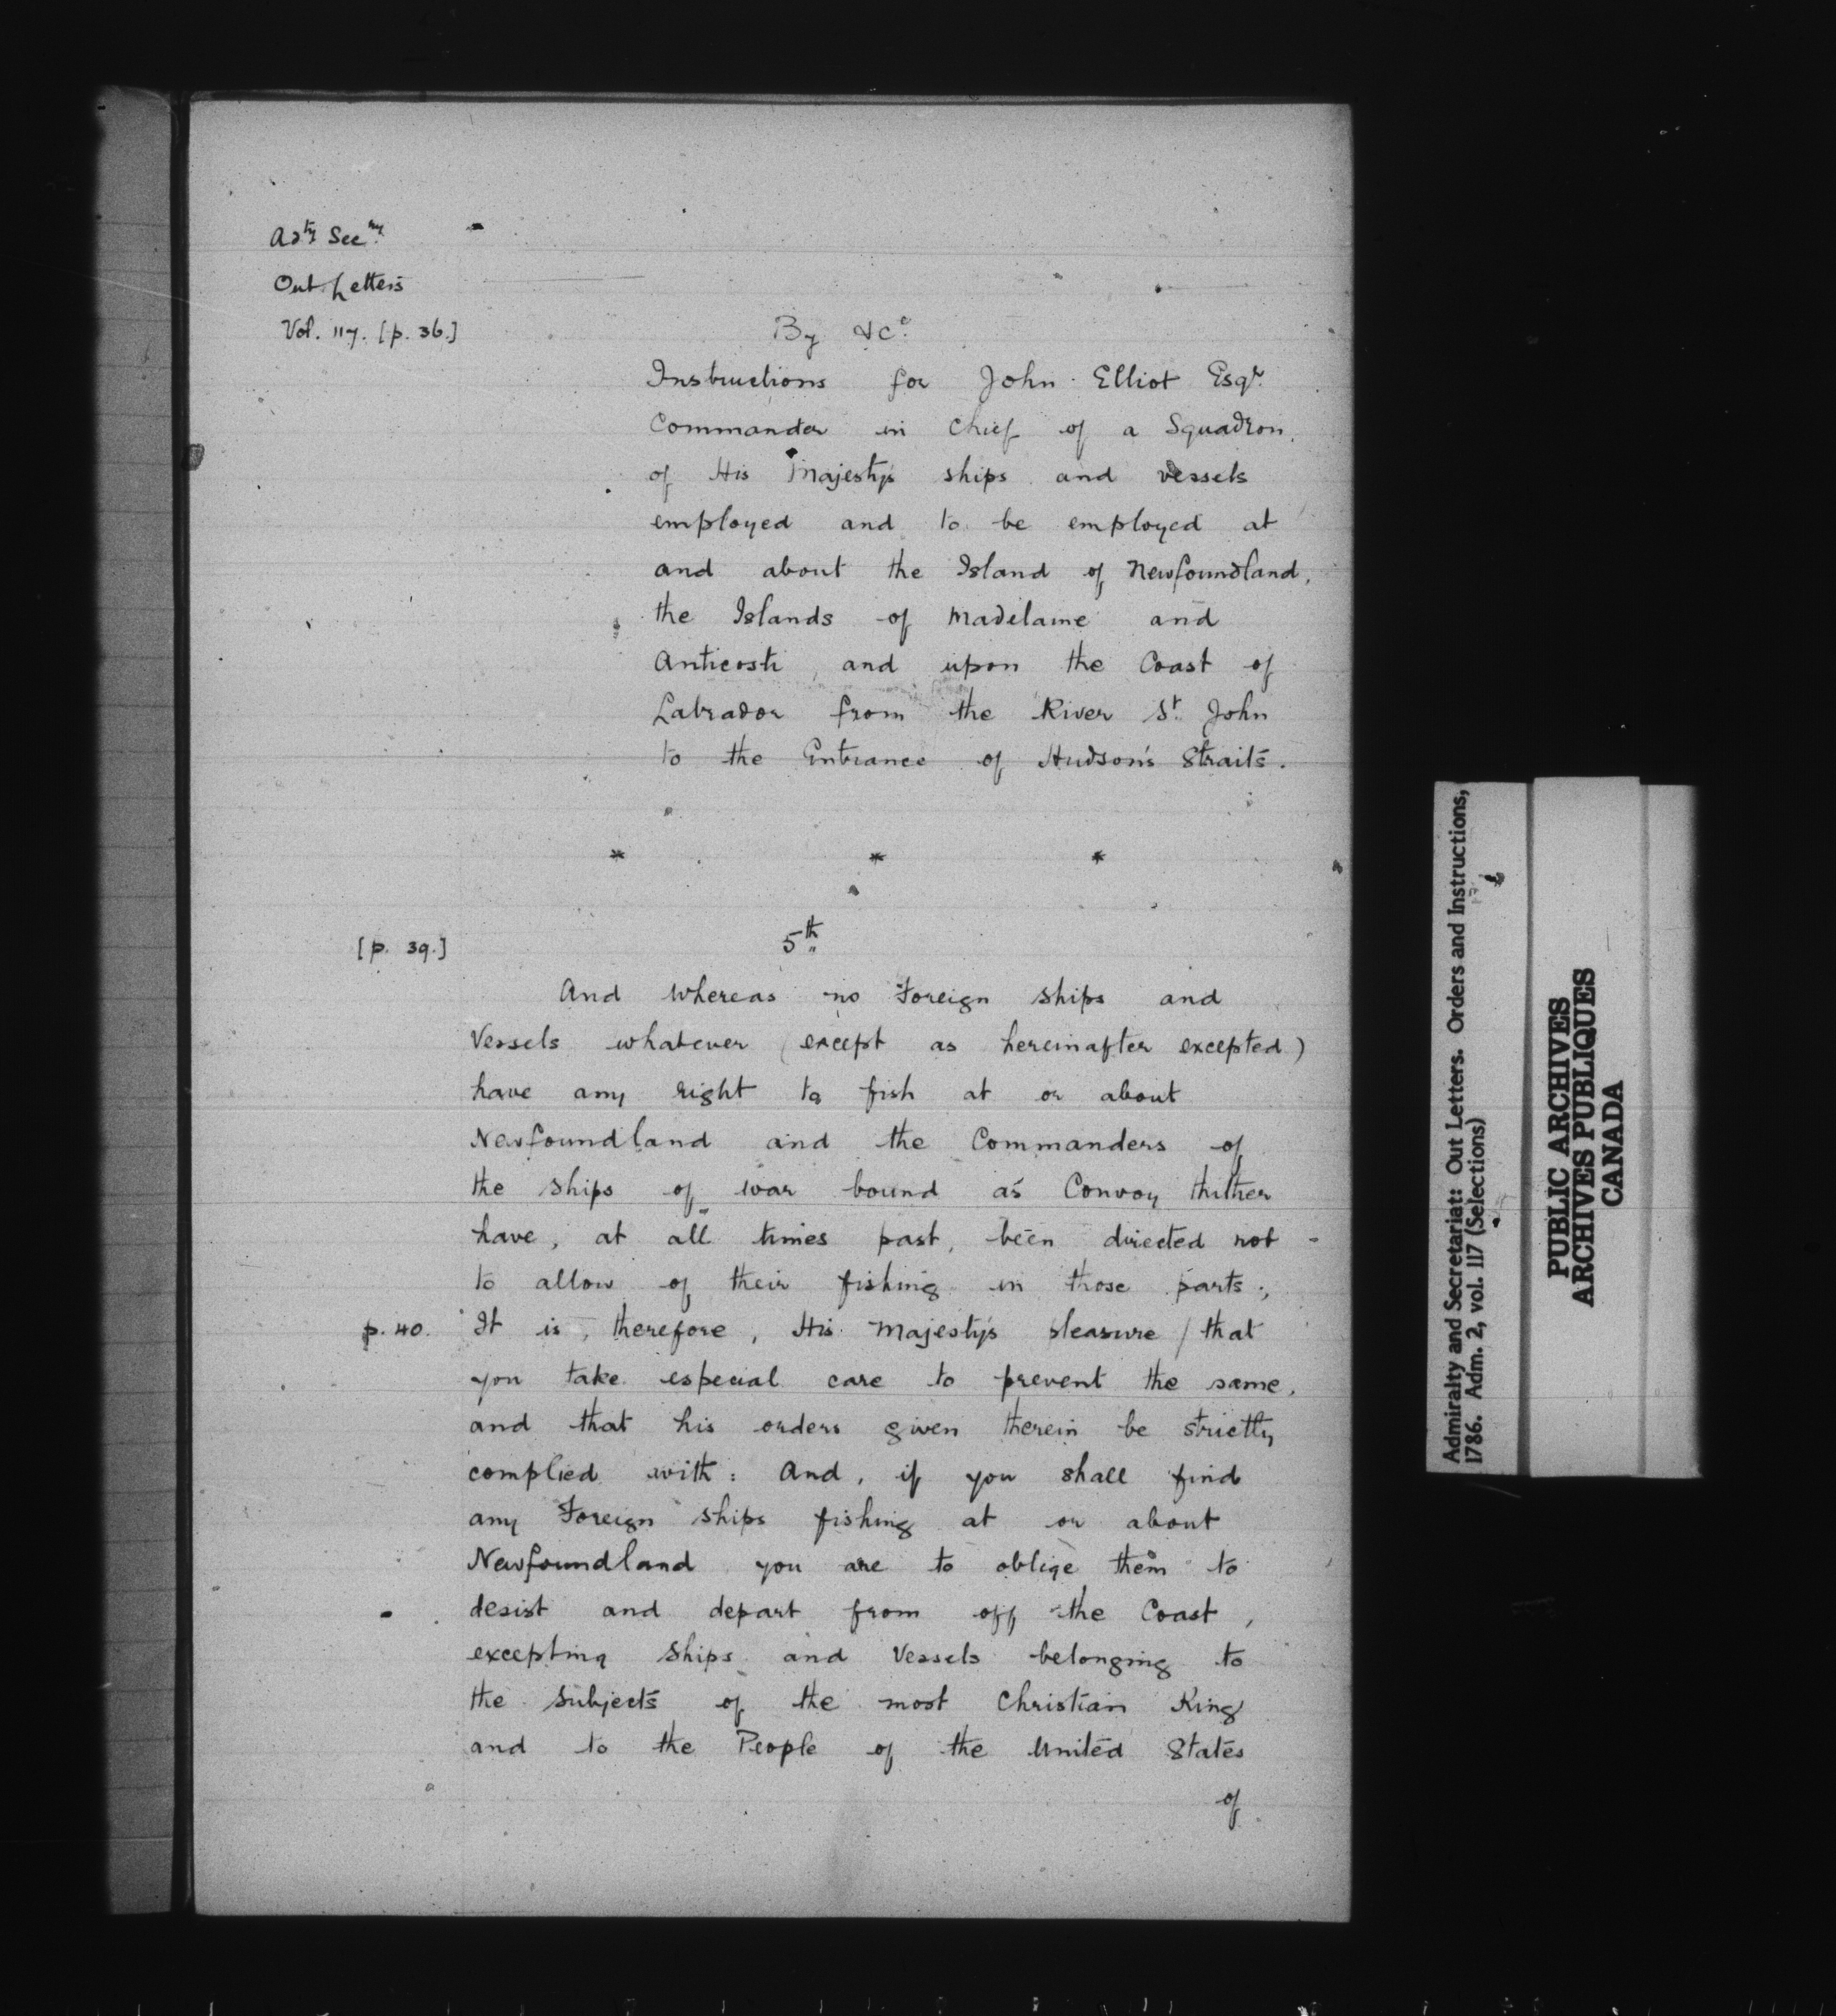 Adty Secry
Out-Letters
Vol. 117. [p. 36.]
By &ce.
Instructions for John Elliot Esqr.
Commander in Chief of a Squadron
of His Majesty's ships and vessels
employed and to be employed at
and about the Island of Newfoundland,
the Islands of Madelaine and
Anticosti, and upon the Coast of
Labrador from the River St. John
to the Entrance of Hudson's Straits.
* * *
[p. 39.]
5th
And whereas no Foreign ships and
Vessels whatever (except as hereinafter excepted)
have any right to fish at or about
Newfoundland and the Commanders of
the ships of war bound as Convoy thither
have, at all times past, been directed not
to allow of their fishing in those parts;
p. 40. It is, therefore, His Majesty's pleasure / that
you take especial care to prevent the same,
and that his orders given therein be strictly
complied with: And, if you shall find
any Foreign ships fishing at or about
Newfoundland you are to oblige them to
desist and depart from off the Coast,
excepting ships and Vessels belonging to
the subjects of the most Christian King
and to the People of the United States
of
Admiralty and Secretariat: Out Letters. Orders and Instructions,
1786. Adm. 2, vol. 117 (Selections)
PUBLIC ARCHIVES
ARCHIVES PUBLIQUES
CANADA